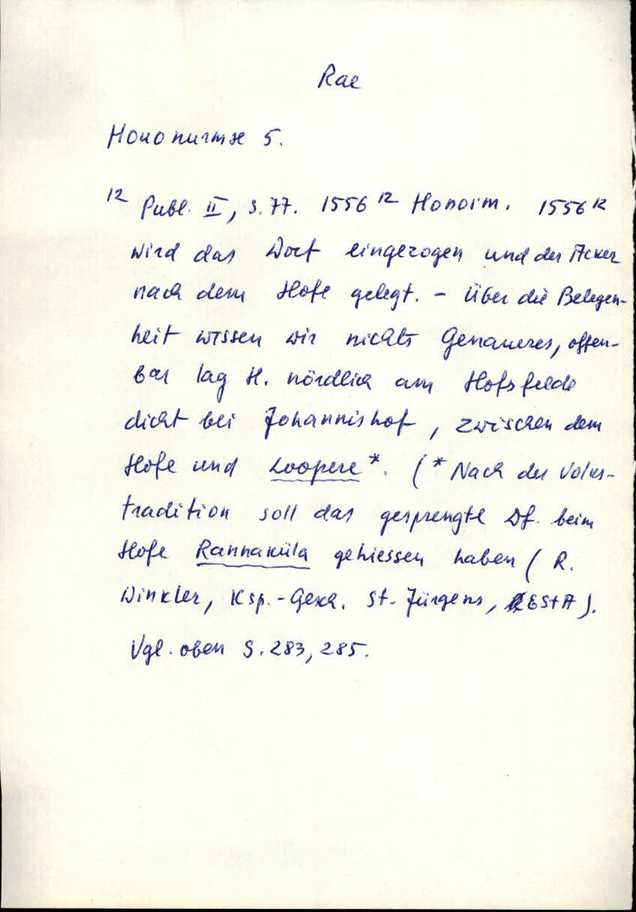 Rae
Hononurmse 5.
12 Publ. II, S.77. 1556 12 Honorm. 1556 12
wird das Dorf eingezogen und der Acker
nach dem Hofe gelegt. – Über die Belegen-
heit wissen wir nichts Genaueres, offen-
bar lag H. nördlich am Hofsfelde
dicht bei Johannishof, zwischen dem
Hofe und Loopere*. (* Nach der Volks-
tradition soll das gesprengte Df. beim
Hofe Rannaküla gehiessen haben (R.
Winkler, Ksp.-Gesch. St. Jürgens, EStA).
Vgl. oben S. 283, 285.